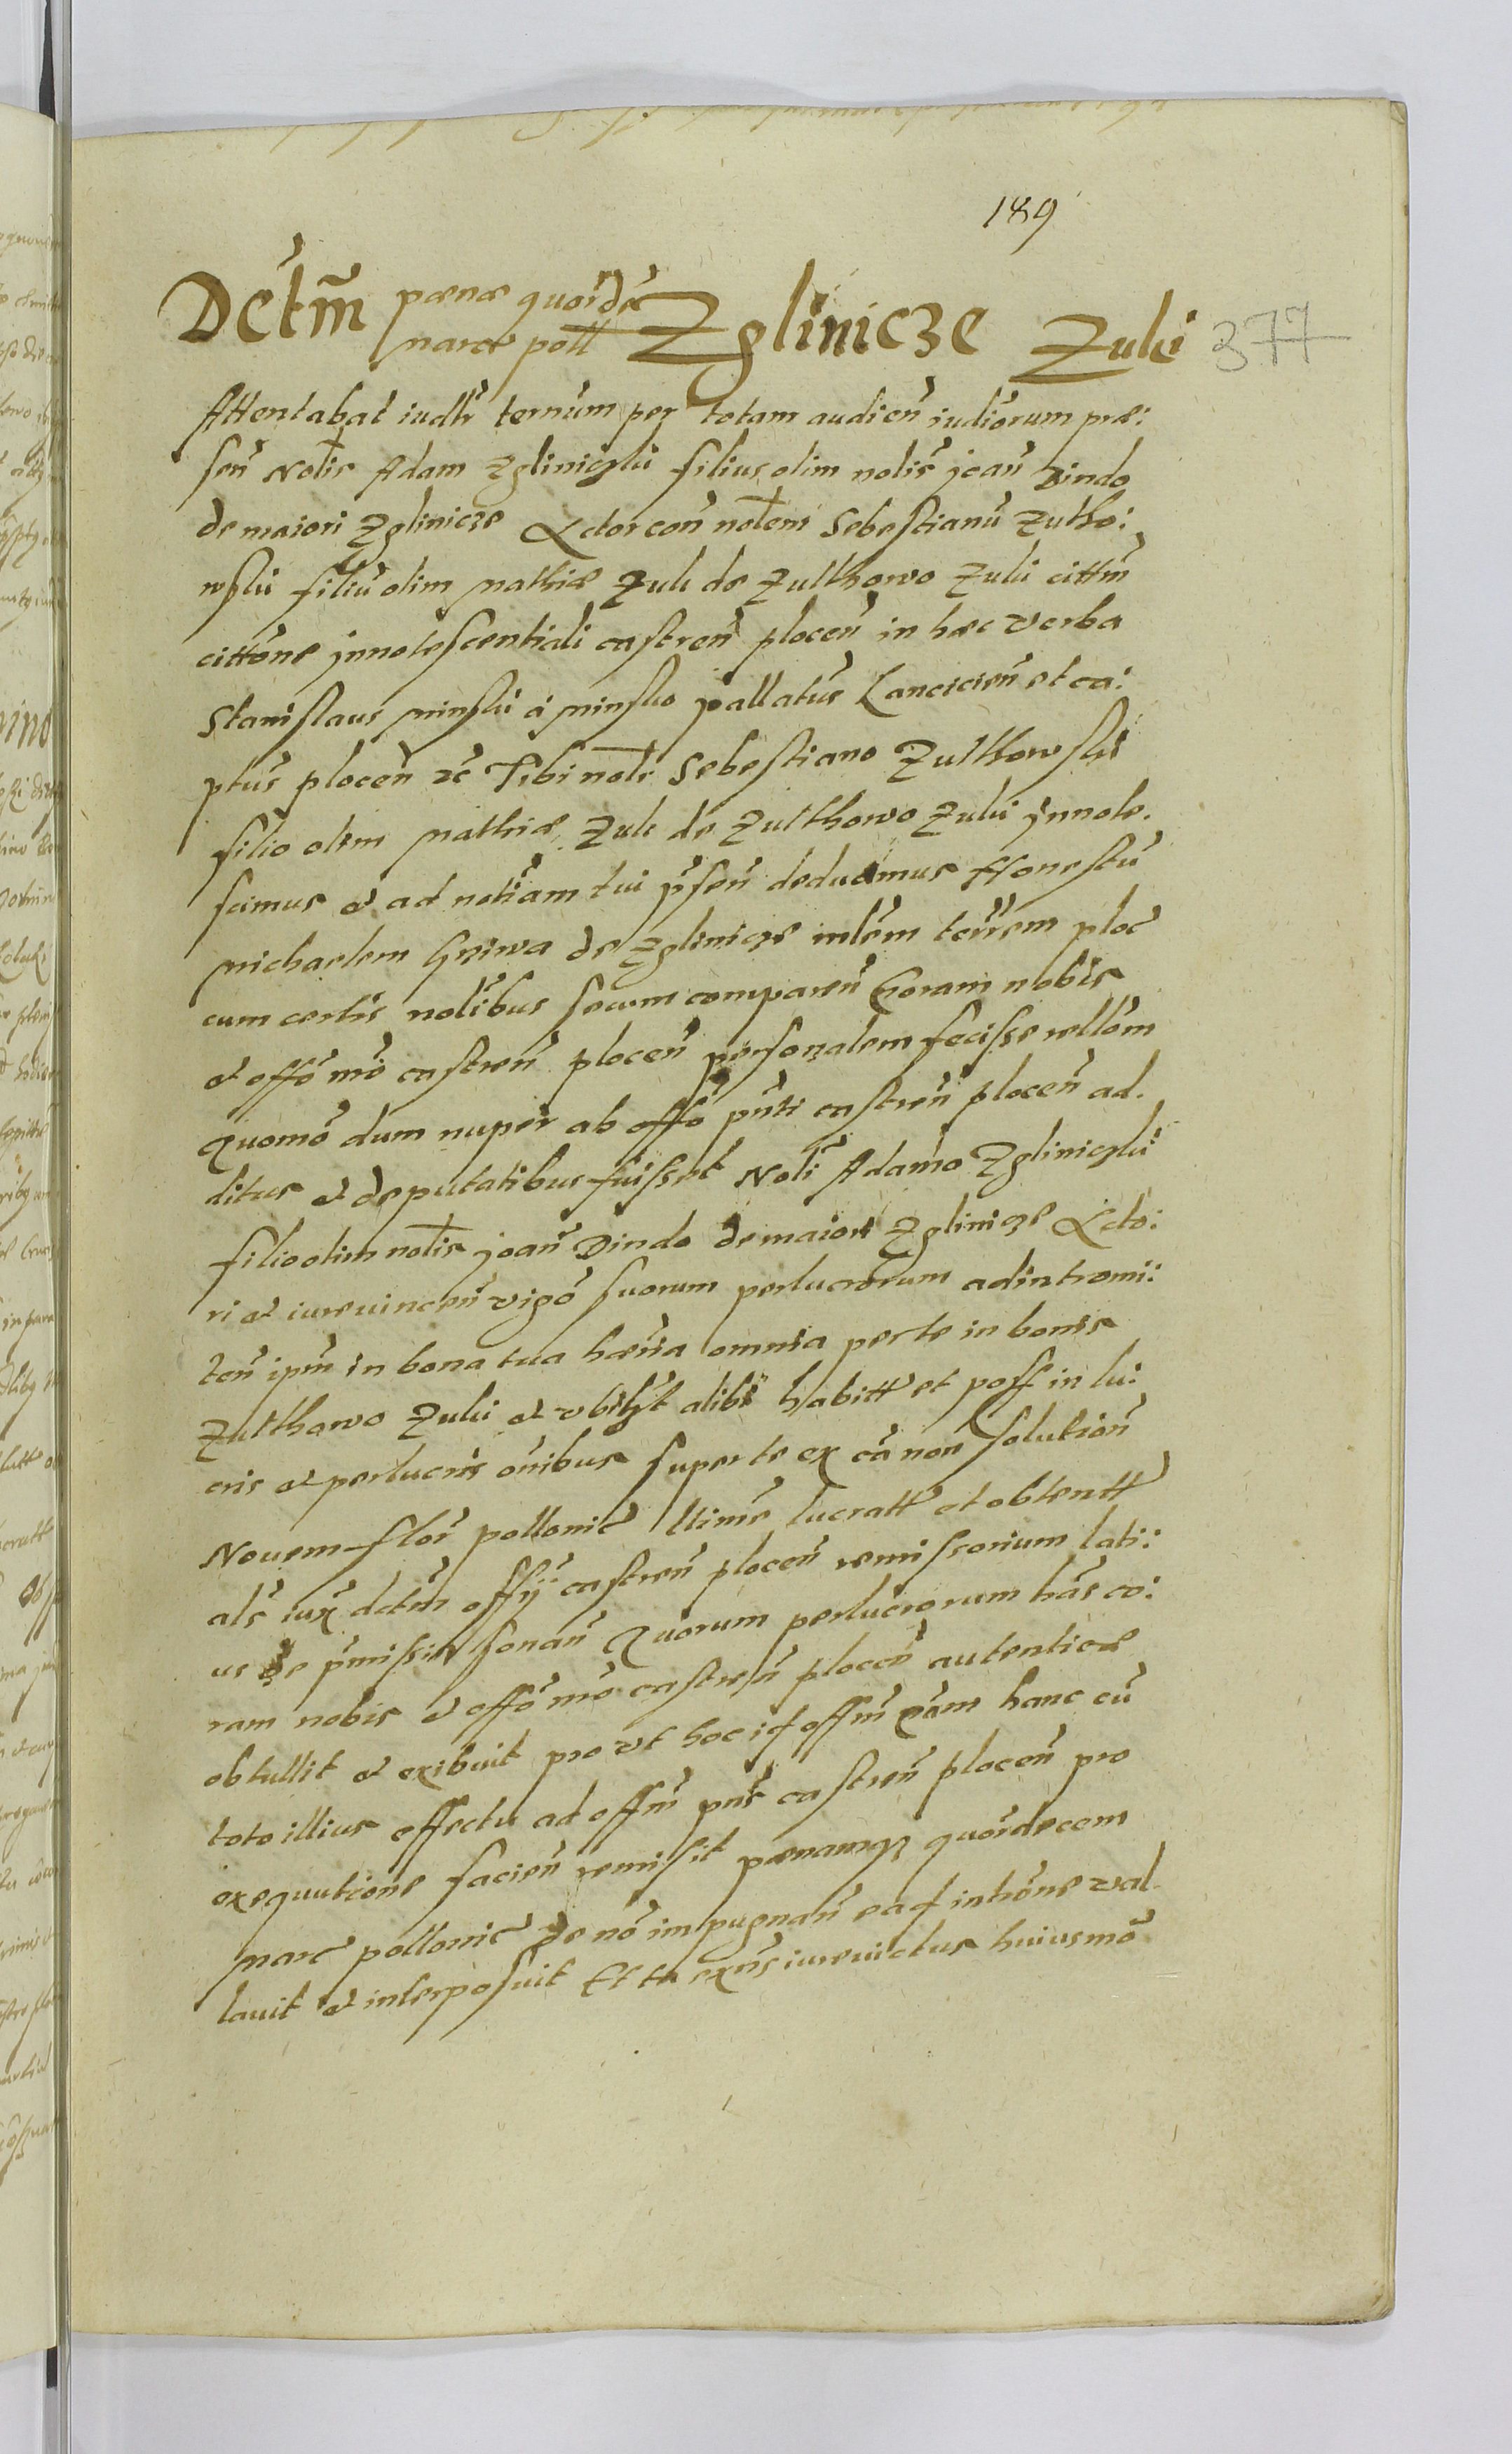 189
Decr̃tm̃ pœnæ quor̃dẽ
marcæ poll Zglinicze Zuki 377
Attentabat iudlr̃ ternũm per totam audieñ iudiõrum præ:
señ Nolĩs Adam Zgliniczki filius olim nolĩs joañ Dindo
de maiori Zglinicze Actor coñ nolẽm Sebestianũ Zutho:
wski filiũ olim Mathiæ Zuk de Zulthowo Zuki citt̃m
citt̃one jnnotescentiali castreñ ploceñ in hæc verba
Stanislaus Minski á Minsko pallatũs Lancicieñ et ca:
ptũs ploceñ ꝛc̃ Tibi nolĩ Sebestiano Zulthowski
filio olim Mathiæ Zuk de Zulthowo Zuki jnnote.
scimus et ad notĩam tui p̃señ deducimus Honestũ
Michaelem Griwa de Zglinicze mlẽm terrẽm ploc̃
cum certis nolĩbus secum compareñ Coram nobis
et offõ mõ castreñ ploceñ personalem fecisse rellõm
Quomõ dum nuper ab offõ pñti castreñ ploceñ ad.
ditus et deputatibus fuisset Nolĩ Adamo Zgliniczki
filio olim nolĩs joañ Dindo de maiori Zglinicze Acto:
ri et iurevinceñ vigõ suorum perlucrorum ad intromi:
teñ ipm̃ in bona tua hærĩa omnia per te in bonis
Zulthowo Zuki et vbilt̃ alibi habitt̃ et poss̃ in lu:
cris et perlucris om̃ibus super te ex cã non solutioñ
Nouem flor̃ pollonic̃ ltime lucratt̃ et obtentt̃
als̃ iux̃ dctm̃ offỹ castreñ ploceñ remissorium lati:
us de p̃missis sonañ Quorum perlucrorum hãs co:
ram nobis et offõ mõ castreñ ploceñ autenticæ
obtullit et exibuit pro vt hoc id offm̃ cãm hanc cũ
toto illius effectu ad offm̃ pñs castreñ ploceñ pro
exequutione facieñ remisit pœnamq̃ quor̃decem
marc̃ pollonic̃ de nõ impugnañ ead̃ intrõne val.
lauit et interposuit Et tu exñs iurevictus huiusmõ